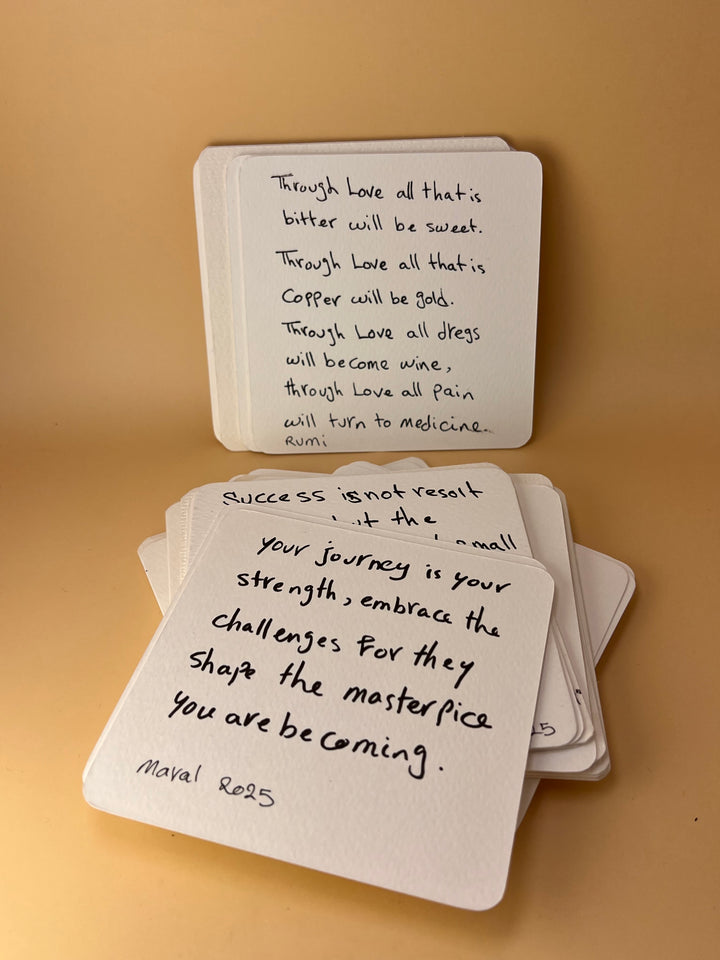 Through Love all that is
bitter will be sweet.
Through Love all that is
Copper will be gold.
Through Love all dregs
will become wine,
through Love all pain
will turn to medicine.
Rumi
Success is not resolt
the
small
your journey is your
strength, embrace the
challenges for they
shape the masterpice
you are becoming.
Maval 2025